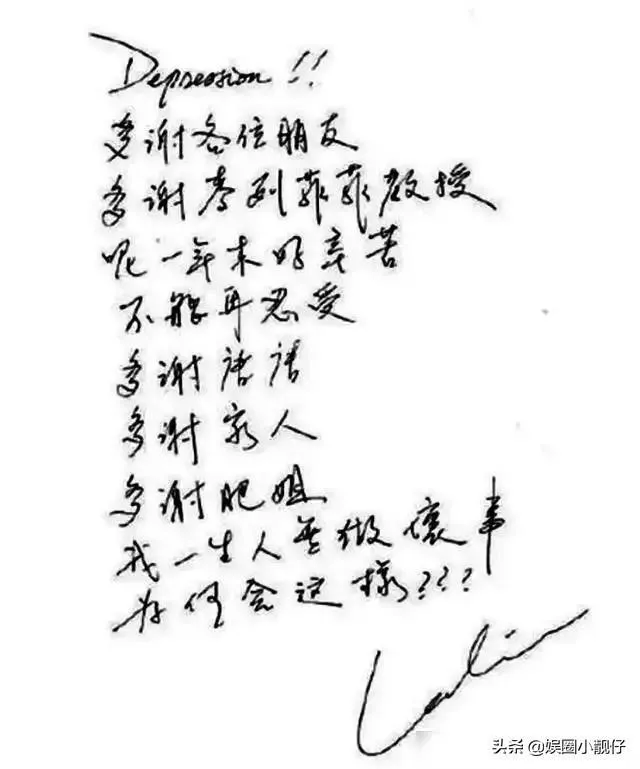 Depression!!
多謝各位朋友
多謝麥列菲菲教授
呢一年來好辛苦
不能再忍受
多謝唐唐
多謝家人
多謝肥姐
我一生人無做壞事
為何會這樣???
Leslie
头条 @娱圈小靓仔